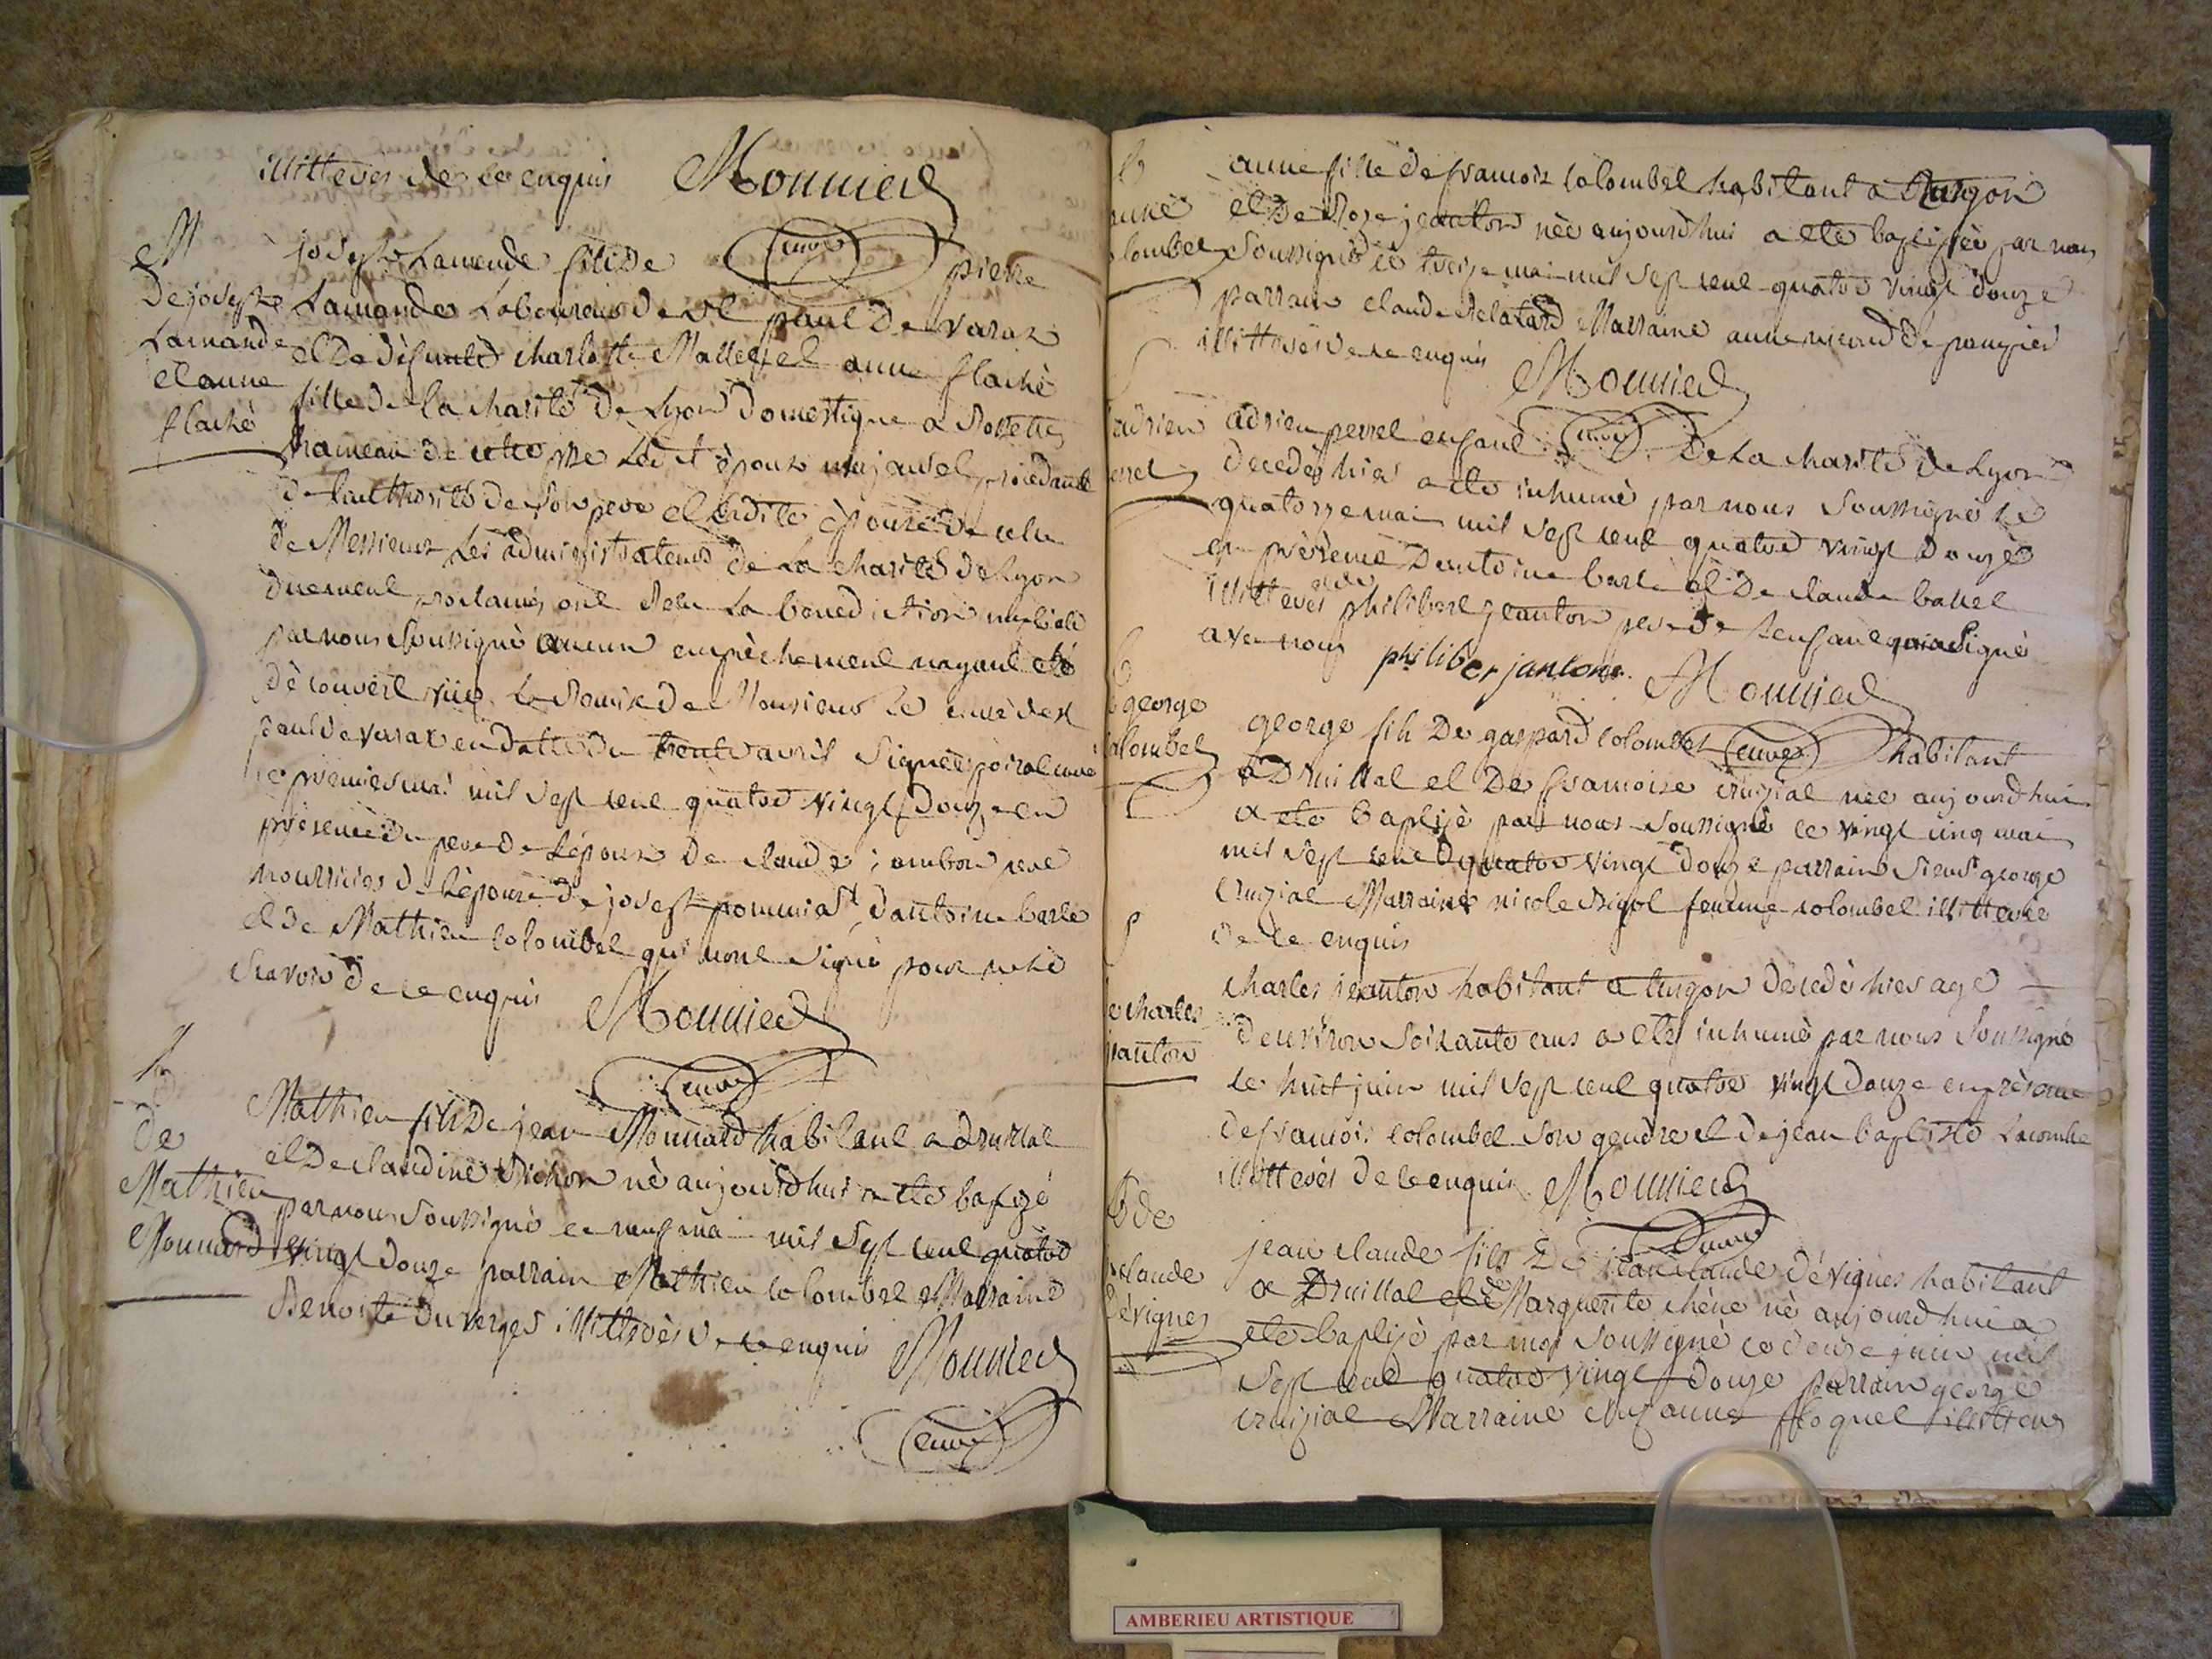 illitterés de ce enquis Monnier
curé
M
de joseph
Lamande
et anne
flaché
joseph Lamende fils de pierre
Lamandes Laboureur de st paul de varax
et de défunte charlotte Mallet et anne flaché
fille de la charité de Lyon domestique a
hameau de cette Led it époux majeur et procedant
de lauthorité de son pere et Ladite épouse de celle
de Messieurs Les administrateurs de La charité de Lyon
duement proclamés ont Recu La benediction nuptiale
par nous soussigné aucun empèchement nayant eté
découvert vüe La Remise de Monsieur le curé de st
paul de varax en datte du trente avril signée curé
le premier mai mil sept cent quatre vingt douze en
présence du pere de Lépoux de claude
nourricier de Lépouse de joseph dantoine barle
et de Mathieu colombel qui nont signé pour ne le
scavoir de ce enquis Monnier
curé
de
Mathieu
Monnard
Mathieu fils de jean Monnard habitant a druillat
et de claudine né aujourdhui a ete baptizé
par nous soussigné le neuf mai mil sept cent quatre
vingt douze parrain Mathieu colombel Marraine
Benoite duverger illitterés de ce enquis Monnier
curé
anne
colombel
anne fille de francois colombel habitant a
et de jeanton née aujourdhui a ete baptisée par nous
soussigné le treize mai mil sept cent quatre vingt douze
parrain claude Marraine anne
illitterés de ce enquis Monnier
curé
adrien
perrel
adrien perrel enfant de La charité de Lyon
decedé hier a ete inhumé par nous soussigné le
quatorze mai mil sept cent quatre vingt douze
en présence dantoine barle et de claude
illitterés philibert jeanton pere de Lenfant qui a signé
avec nous philiber janton Monnier
curé
george
colombel
george fils de gaspard colombel habitant
a Druillat et De francoise cruizial née aujourdhui
a ete baptisé par nous soussigné le vingt cinq mai
mil sept cent quatre vingt douze parrain sieur george
Cruizial Marraine nicole femme colombel illitterés
de ce enquis
charles
janton
charles jeanton habitant a turgon décedé hier agé
denviron soixante ans a eté inhumé par nous soussigné
le huit juin mil sept cent quatre vingt douze en présence
de francois colombel son gendre et de jean baptiste Lacombe
illitterés de ce enquis Monnier
curé
B de
claude
dévignes
jean claude fils de jean claude dévignes habitant
a Druillat et de Marguerite chéne né aujourdhui a
ete baptisé par moi soussigné le douze juin mil
sept cent quatre vingt douze parrain george
cruizial Marraine anne illitterés
AMBERIEU ARTISTIQUE